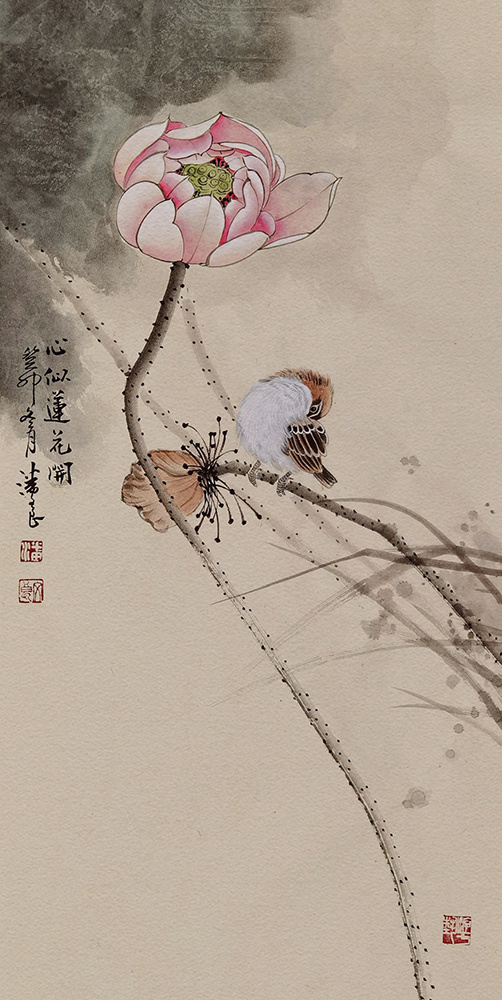 心似蓮花開
癸卯冬月潘良